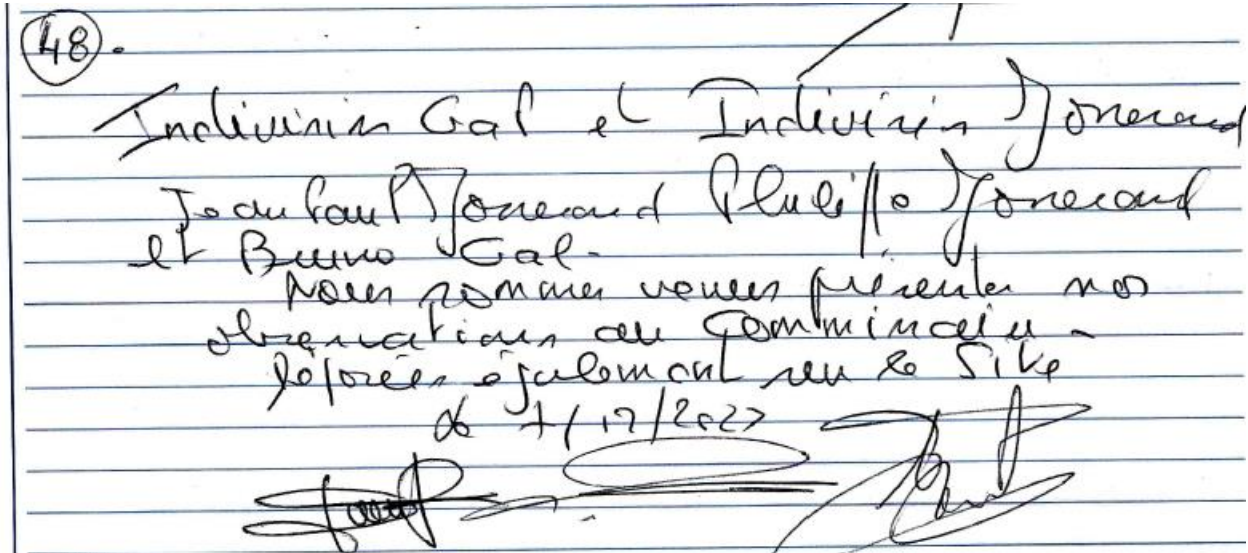 48.
Indivision Gal et Indivision
Jean Paul Philippe
et Bruno Gal-
Nous sommes venus présenter nos
observations au Commissaire -
déposées également sur le Site
le 7/12/2022